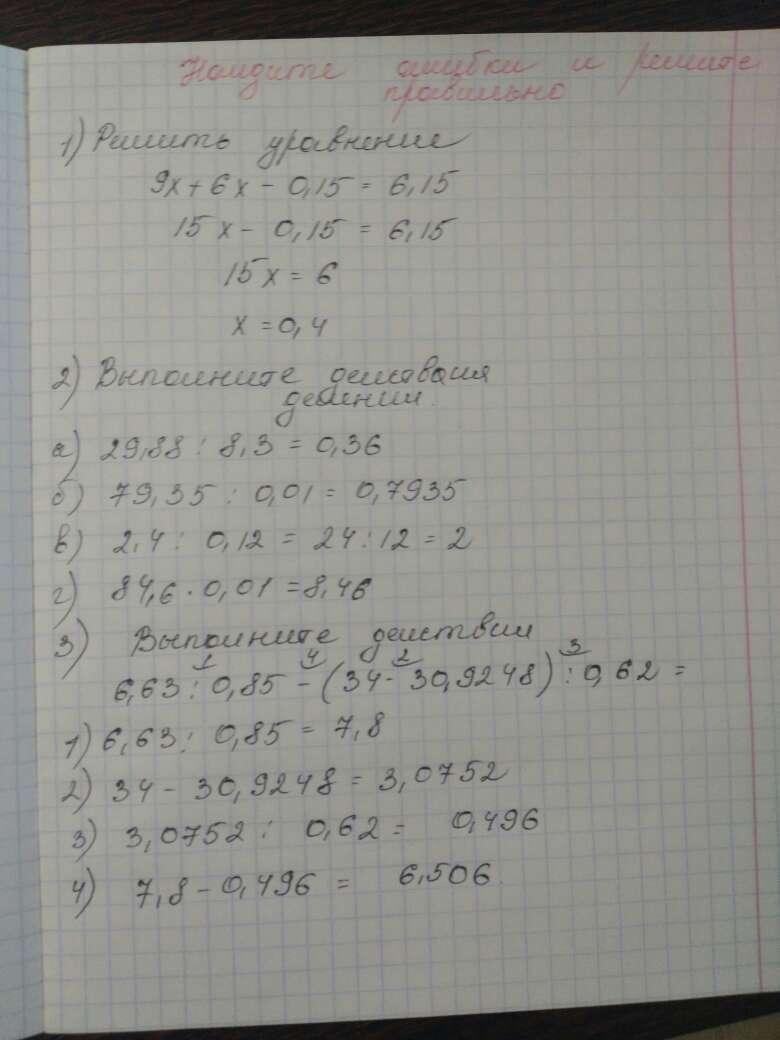 Найдите ошибки и решите
правильно
1) Решить уравнение
9x + 6x - 0,15 = 6,15
15x - 0,15 = 6,15
15x = 6
x = 0,4
2) Выполните действия
деления.
а) 29,88 : 8,3 = 0,36
б) 79,35 : 0,01 = 0,7935
в) 2,4 : 0,12 = 24 : 12 = 2
г) 84,6 · 0,01 = 8,46
3) Выполните действия
1 4 2 3
6,63 : 0,85 - (34 - 30,9248) : 0,62 =
1) 6,63 : 0,85 = 7,8
2) 34 - 30,9248 = 3,0752
3) 3,0752 : 0,62 = 0,496
4) 7,8 - 0,496 = 6,506.